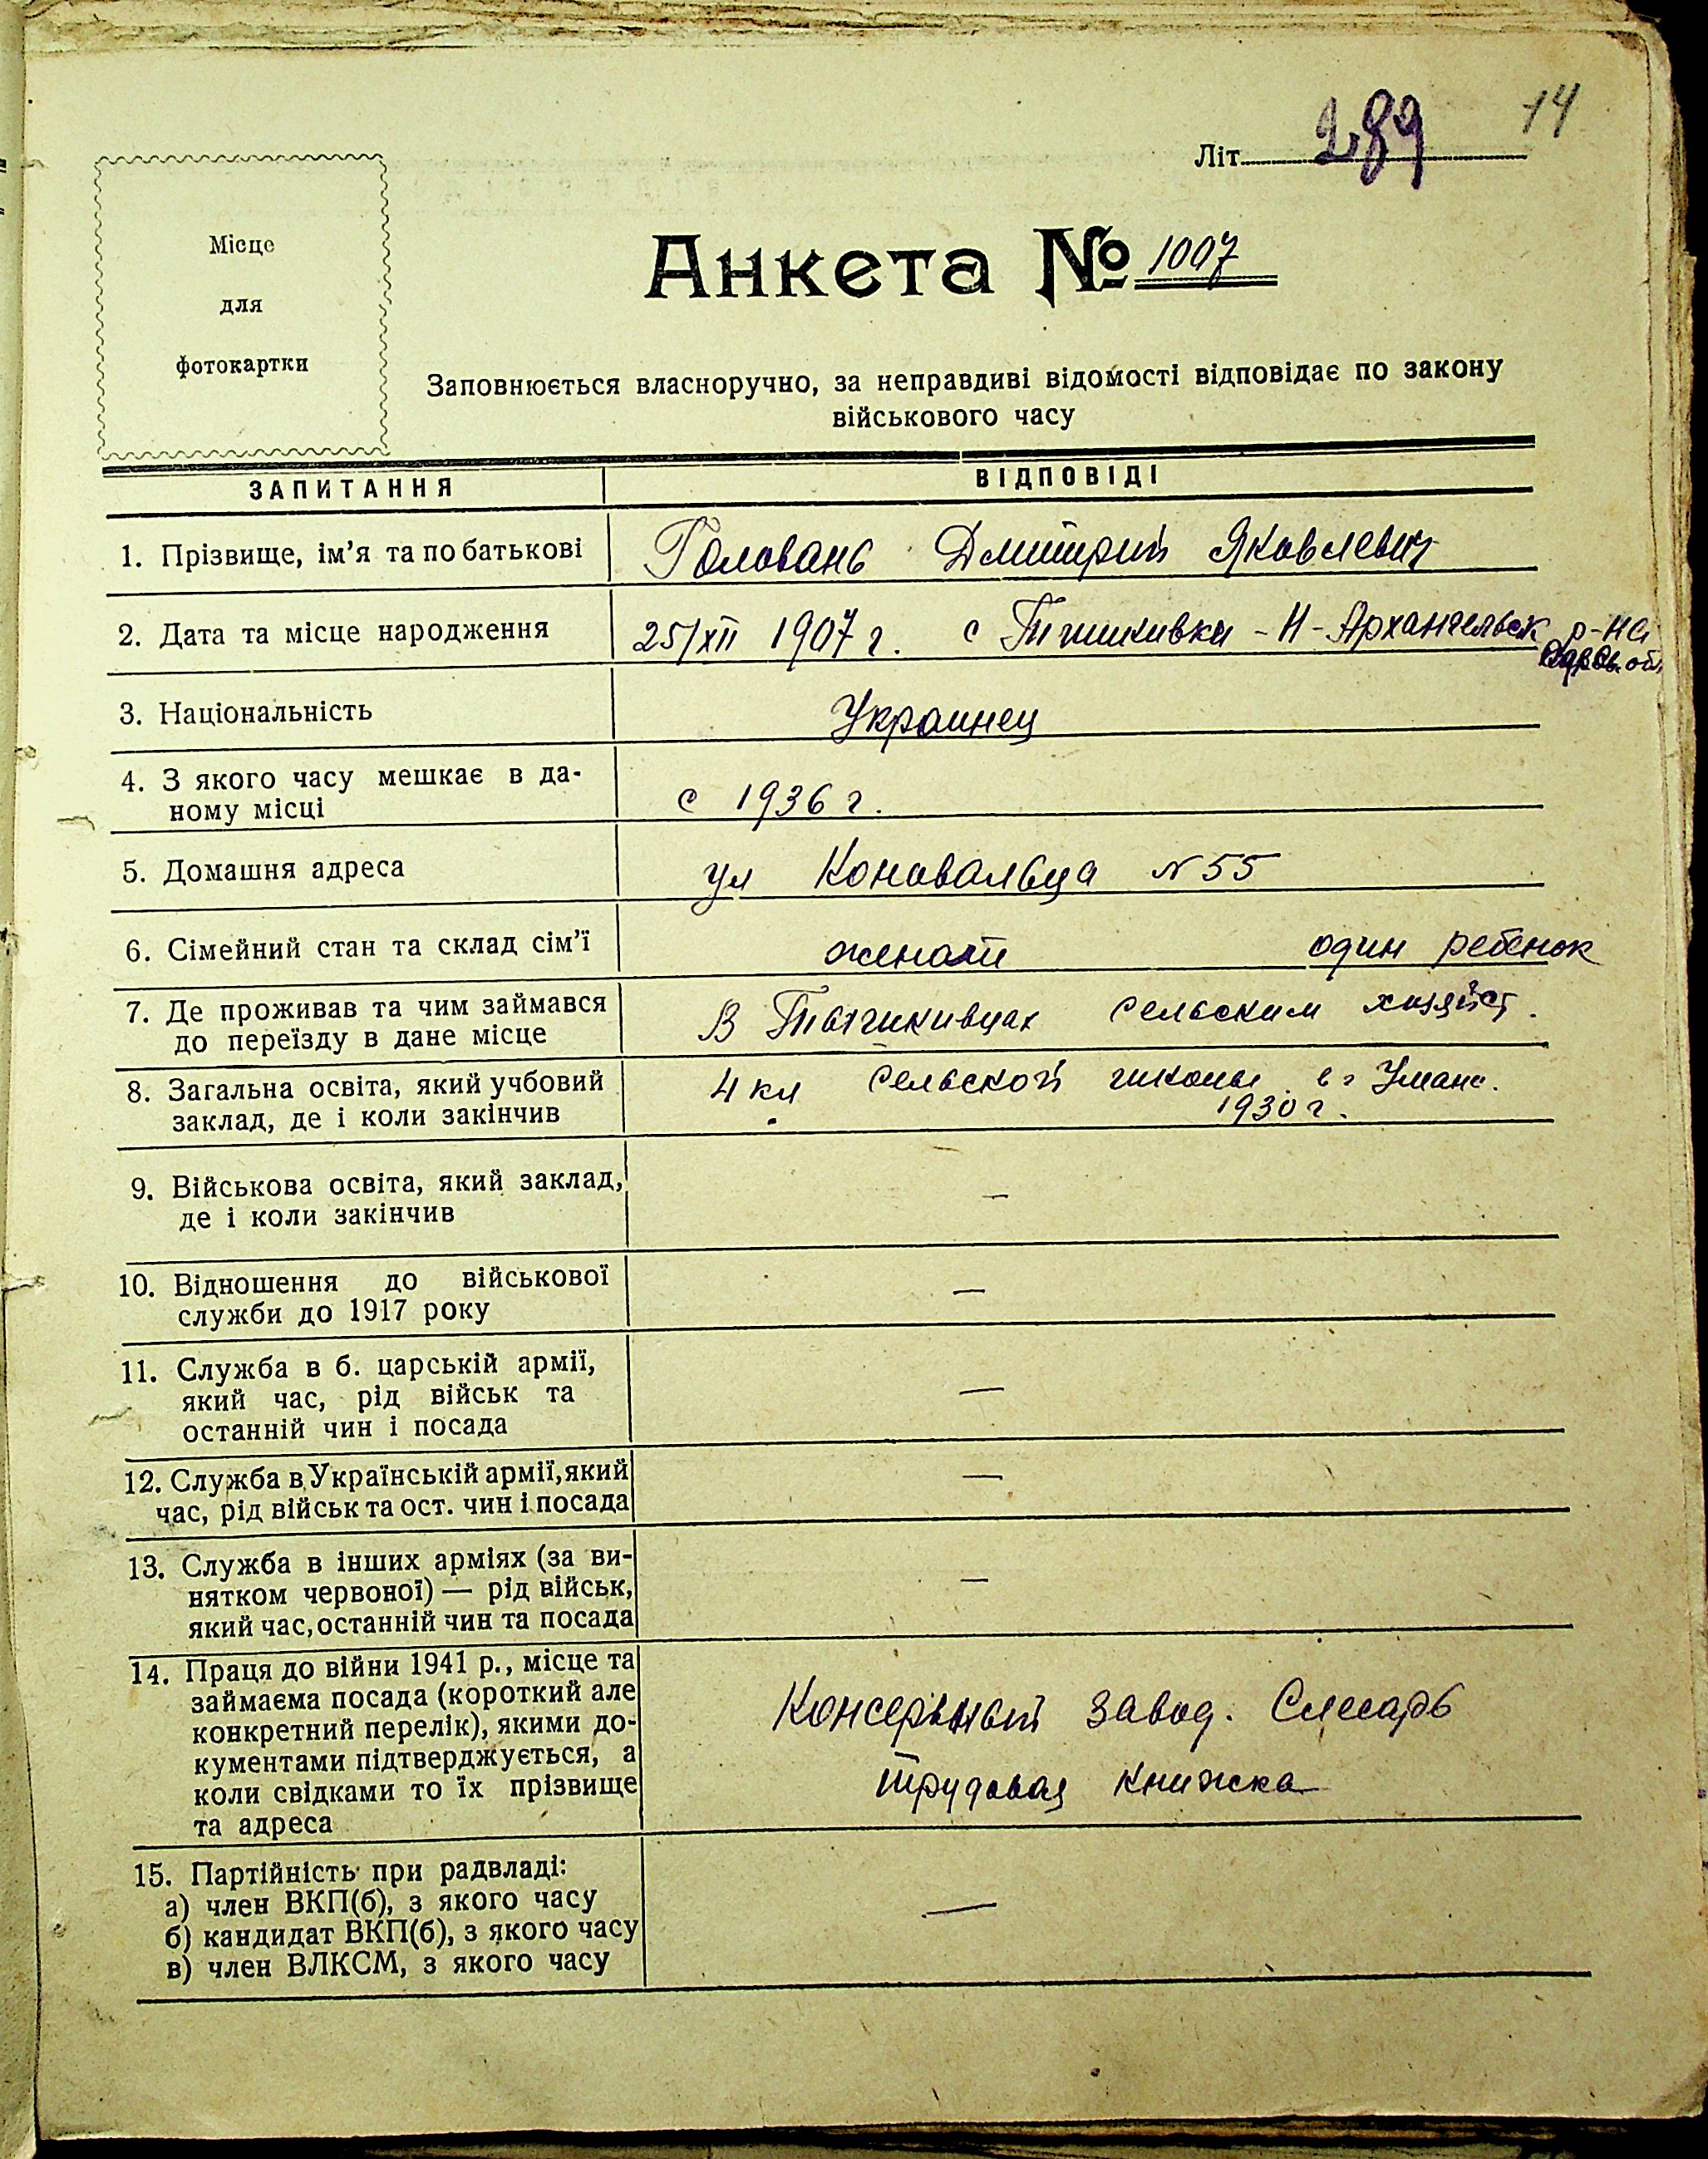 14
Літ. 289
Місце
для
фотокартки
Анкета № 1007
Заповнюється власноручно, за неправдиві відомості відповідає по закону
військового часу
ЗАПИТАННЯ ВІДПОВІДІ
1. Прізвище, ім’я та по батькові Головань Дмитрий Яковлевич
2. Дата та місце народження 25/XII 1907 г. с - Н-Архангельск р-на
об.
3. Національність Украинец
4. З якого часу мешкає в да-
ному місці с 1936 г.
5. Домашня адреса ул Коновальца N 55
6. Сімейний стан та склад сім’ї женат один ребенок
7. Де проживав та чим займався
до переїзду в дане місце В сельским хозяйст.
8. Загальна освіта, який учбовий 4 кл сельской школы в г Умань.
заклад, де і коли закінчив 1930 г.
9. Військова освіта, який заклад, —
де і коли закінчив
10. Відношення до військової —
служби до 1917 року
11. Служба в б. царській армії,
який час, рід військ та —
останній чин і посада
12. Служба в Українській армії, який —
час, рід військ та ост. чин і посада
13. Служба в інших арміях (за ви-
нятком червоної) — рід військ, —
який час, останній чин та посада
14. Праця до війни 1941 р., місце та
займаєма посада (короткий але Консервный завод. Слесарь
конкретний перелік), якими до-
кументами підтверджується, а трудовая книжка
коли свідками то їх прізвище
та адреса
15. Партійність при радвладі:
а) член ВКП(б), з якого часу —
б) кандидат ВКП(б), з якого часу
в) член ВЛКСМ, з якого часу